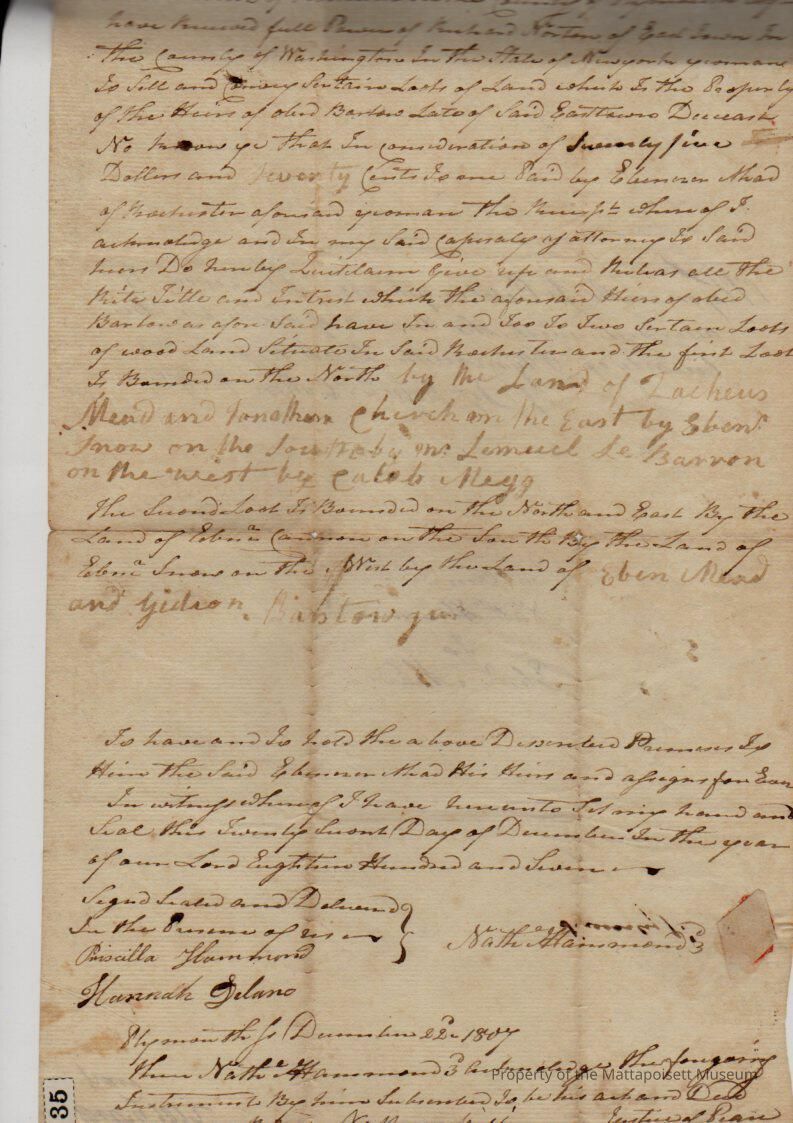 have Received full Power of Richard Norton of East Town In
the County of Washington In the State of New york yeoman
To Sell and Convey Sertain Lots of Land which Is the Property
of the Heirs of obed Barlow Late of Said Easttown Deceast
No know ye that In Consideration of Twenty five
Dollers and Seventy Cents To me Paid by Ebenezer Mead
of Rochester aforesaid yeoman the Receipt whereof I
acknolidge and In my Said Capasaty of attorney To Said
heirs Do hereby Quitclaim Give up and Releas all the
Rite Title and Intrest which the aforesaid Heirs of obed
Barlow as afore Said have In and Too To Two Sertain Loots
of wood Land Situate In Said Rochester and the first Loot
Is Bounded on the North by the Land of Zacheus
Mead and Jonathan Church on the East by Eben.r
Snow on the South by mr Lemuel Le Barron
on the west by Caleb Megg
The Second Loot Is Bounded on the North and East By the
Land of Ebnr Cannon on the South By the Land of
Ebnr Snow on the West by the Land of Eben Mead
and Gideon Barstow jur
To have and To hold the above Described Premises To
Him the Said Ebenezer Mead His Heirs and assigns for Ever
In witness whereof I have hereunto Set my hand and
Seal this Twenty Secont Day of December In the year
of our Lord Eightteen Hundred and Seven
Signd Sealed and Deliverd
In the Presence of us
Nathl Hammond 3d
Priscilla Hammond
Hannah Delano
Plymouth Ss December 22d 1807
then Nathl Hammond 3d acknowledge the foregoing
Instrument By him Subscribed to be his act and Deed
Justice of Peace
35
Property of the Mattapoisett Museum